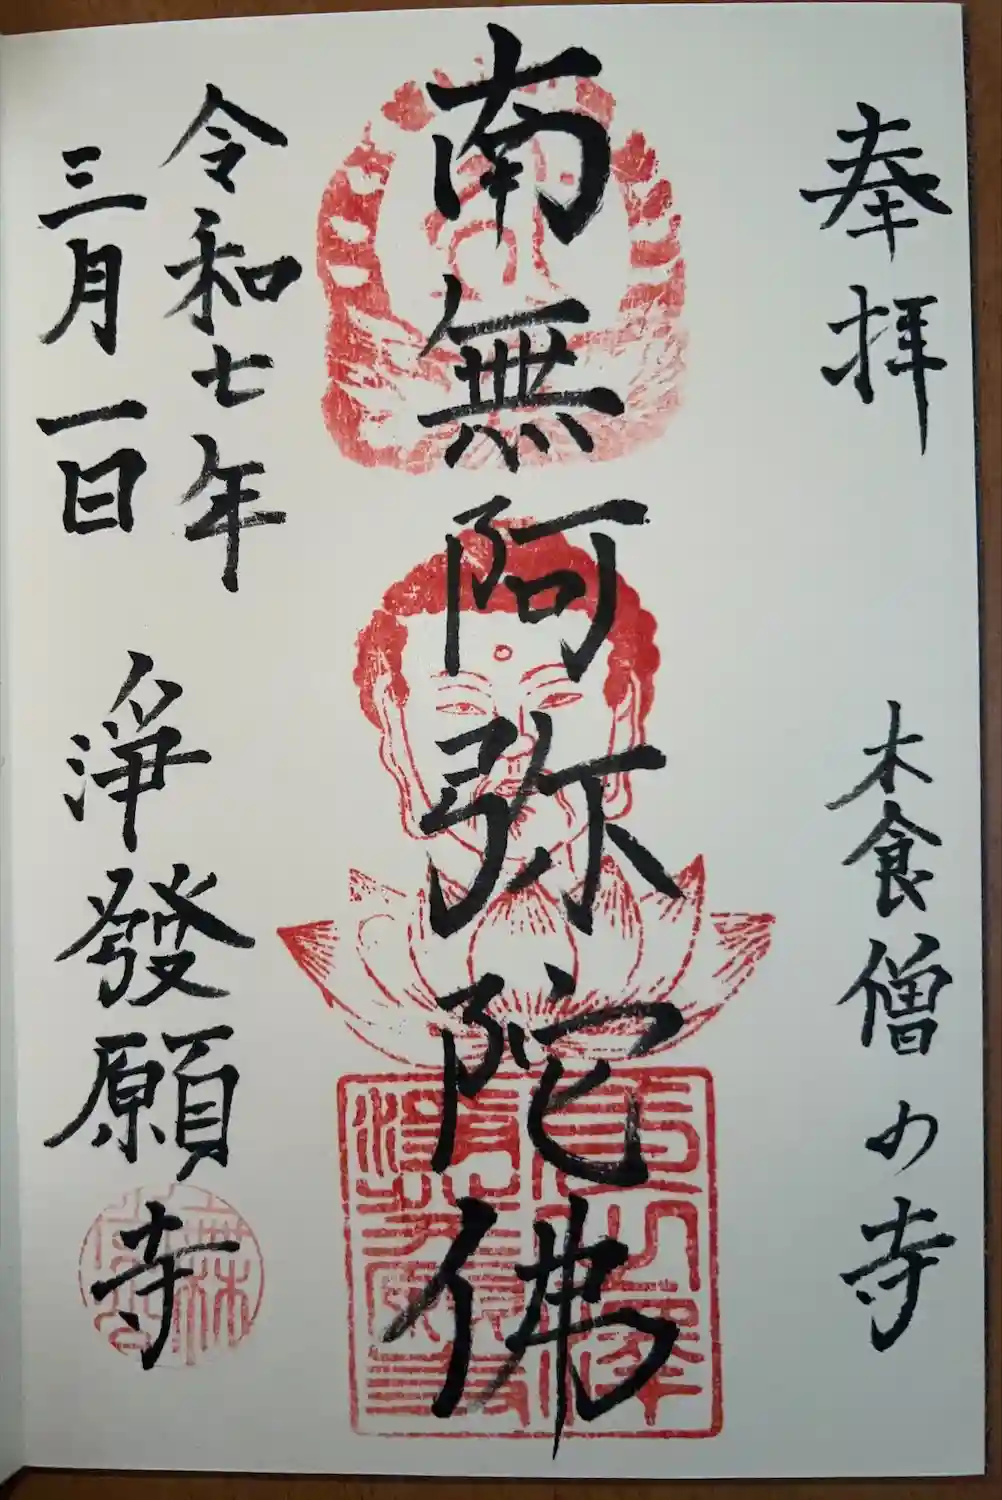 奉拝
木食僧の寺
南無阿弥陀佛
令和七年
三月一日
淨發願寺